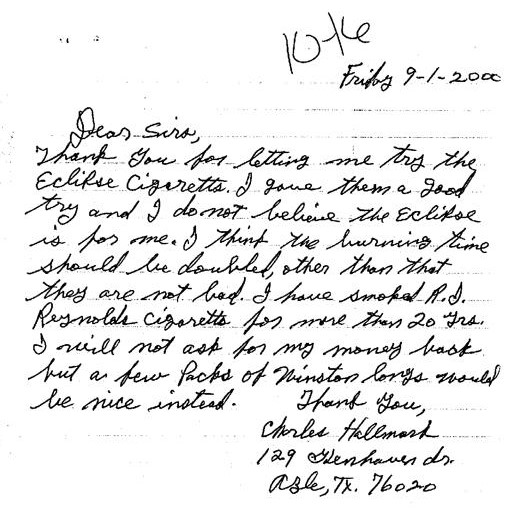 10-16
Friday 9-1-2000
Dear Sirs,
Thank You for letting me try the
Eclipse Cigaretts. I gave them a good
try and I do not believe the Eclipse
is for me. I think the burning time
should be doubled, other than that
they are not bad. I have smoked R.J.
Reynolds Cigaretts for more than 20 Yrs.
I will not ask for my money back
but a few Packs of Winston longs would
be nice instead. Thank You,
Charles Hallmark
129 dr.
Azle, Tx. 76020